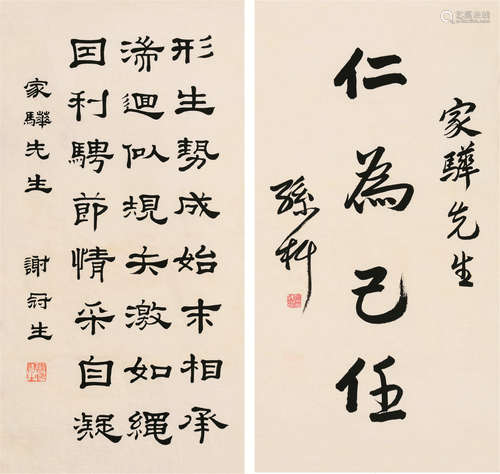 家驊先生
仁為己任
孫科
形生勢成始末相承
湍迴似規矢激如繩
因利騁節情采自凝
家驊先生 謝冠生